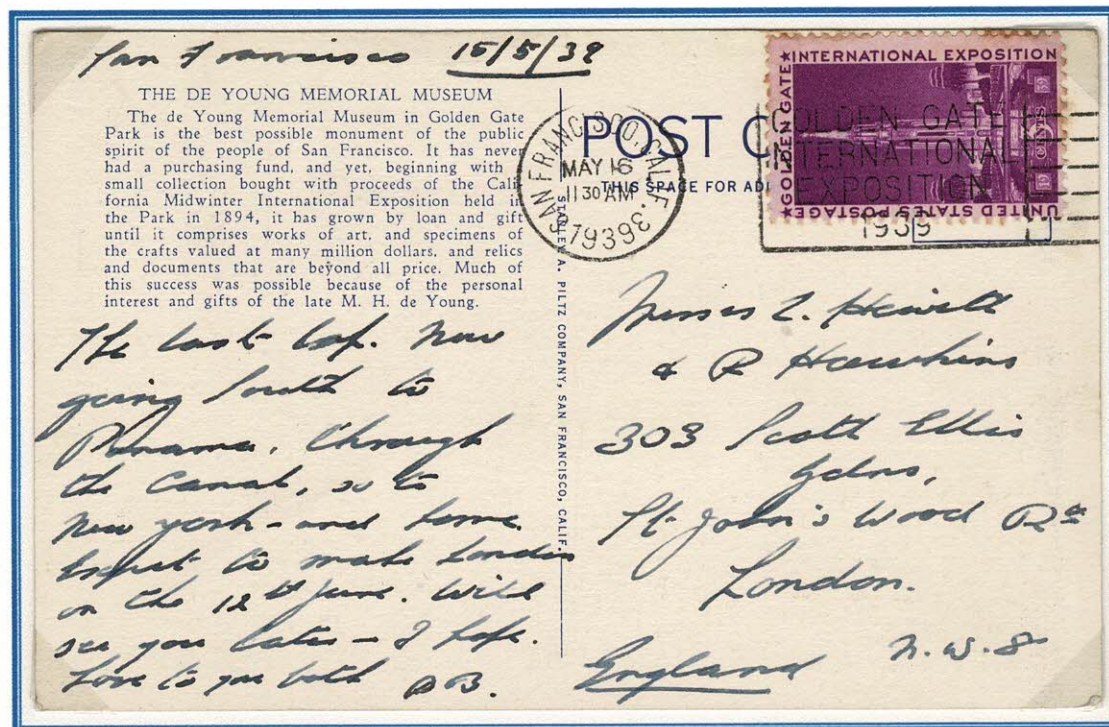 San Francisco 15/5/39
THE DE YOUNG MEMORIAL MUSEUM
The de Young Memorial Museum in Golden Gate
Park is the best possible monument of the public
spirit of the people of San Francisco. It has never
had a purchasing fund, and yet, beginning with
small collection bought with proceeds of the Cali
fornia Midwinter International Exposition held in
the Park in 1894, it has grown by loan and gift
until it comprises works of art, and specimens of
the crafts valued at many million dollars, and relics
and documents that are beyond all price. Much of
this success was possible because of the personal
interest and gifts of the late M. H. de Young.
The last lap. Now
going South to
Panama, through
the Canal, so to
New York - and home.
Expect to make London
on the 12th June. Will
see you later - I hope.
Love to you both
STANLEY A. PILTZ COMPANY, SAN FRANCISCO, CALIF.
POST C
THIS SPACE FOR AD
SAN FRANCISCO, CALIF.
MAY 16
11 30 AM
1939
GOLDEN GATE
INTERNATIONAL
EXPOSITION
1939
GOLDEN GATE
INTERNATIONAL EXPOSITION
UNITED STATES POSTAGE
3 CENTS 3
19 39
Misses L. Hewett
& R Hawkins
303 Scott Ellis
Gdns,
St. John's Wood Rd
London.
England N.W.8